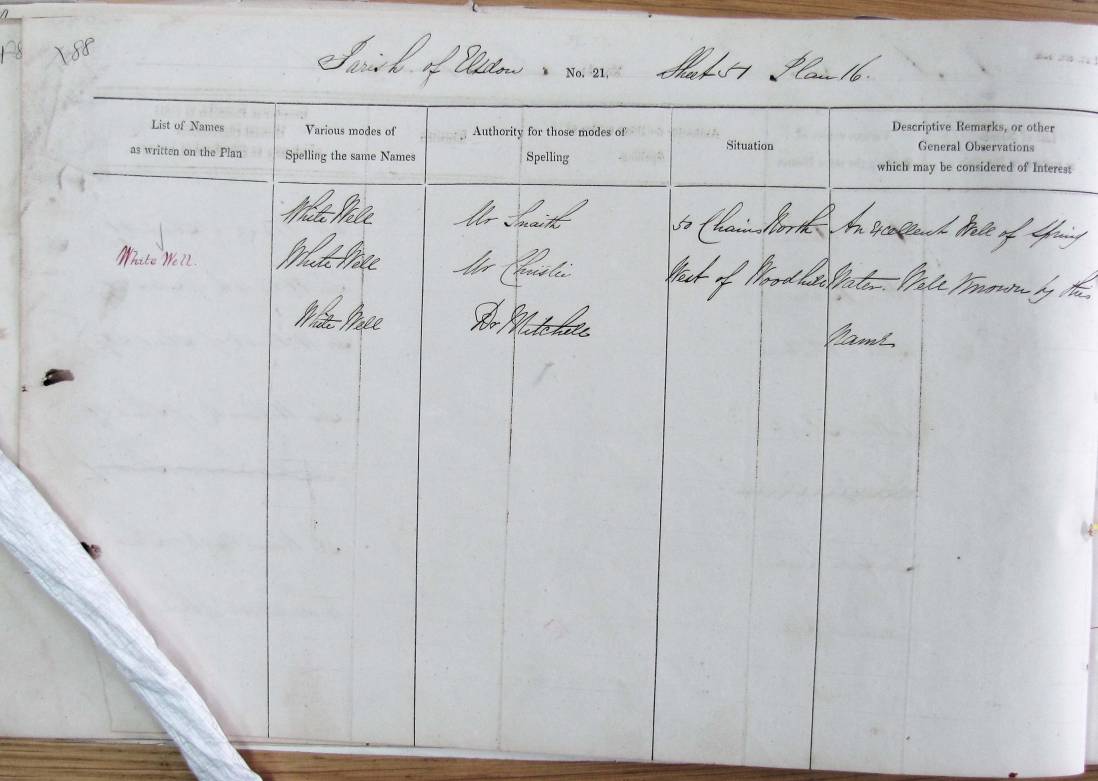 188
Parish of Elsdon No. 21, Sheet 51 Plan 16.
List of Names
as written on the Plan
Various modes of
Spelling the same Names
Authority for those modes of
Spelling
Situation
Descriptive Remarks, or other
General Observations
which may be considered of Interest
White Well.
White Well
White Well
White Well
Mr Snaith
Mr Christie
Dr Mitchell
50 Chains North
West of Woodhill
An excellent Well of Spring
Water. Well Known by this
Name